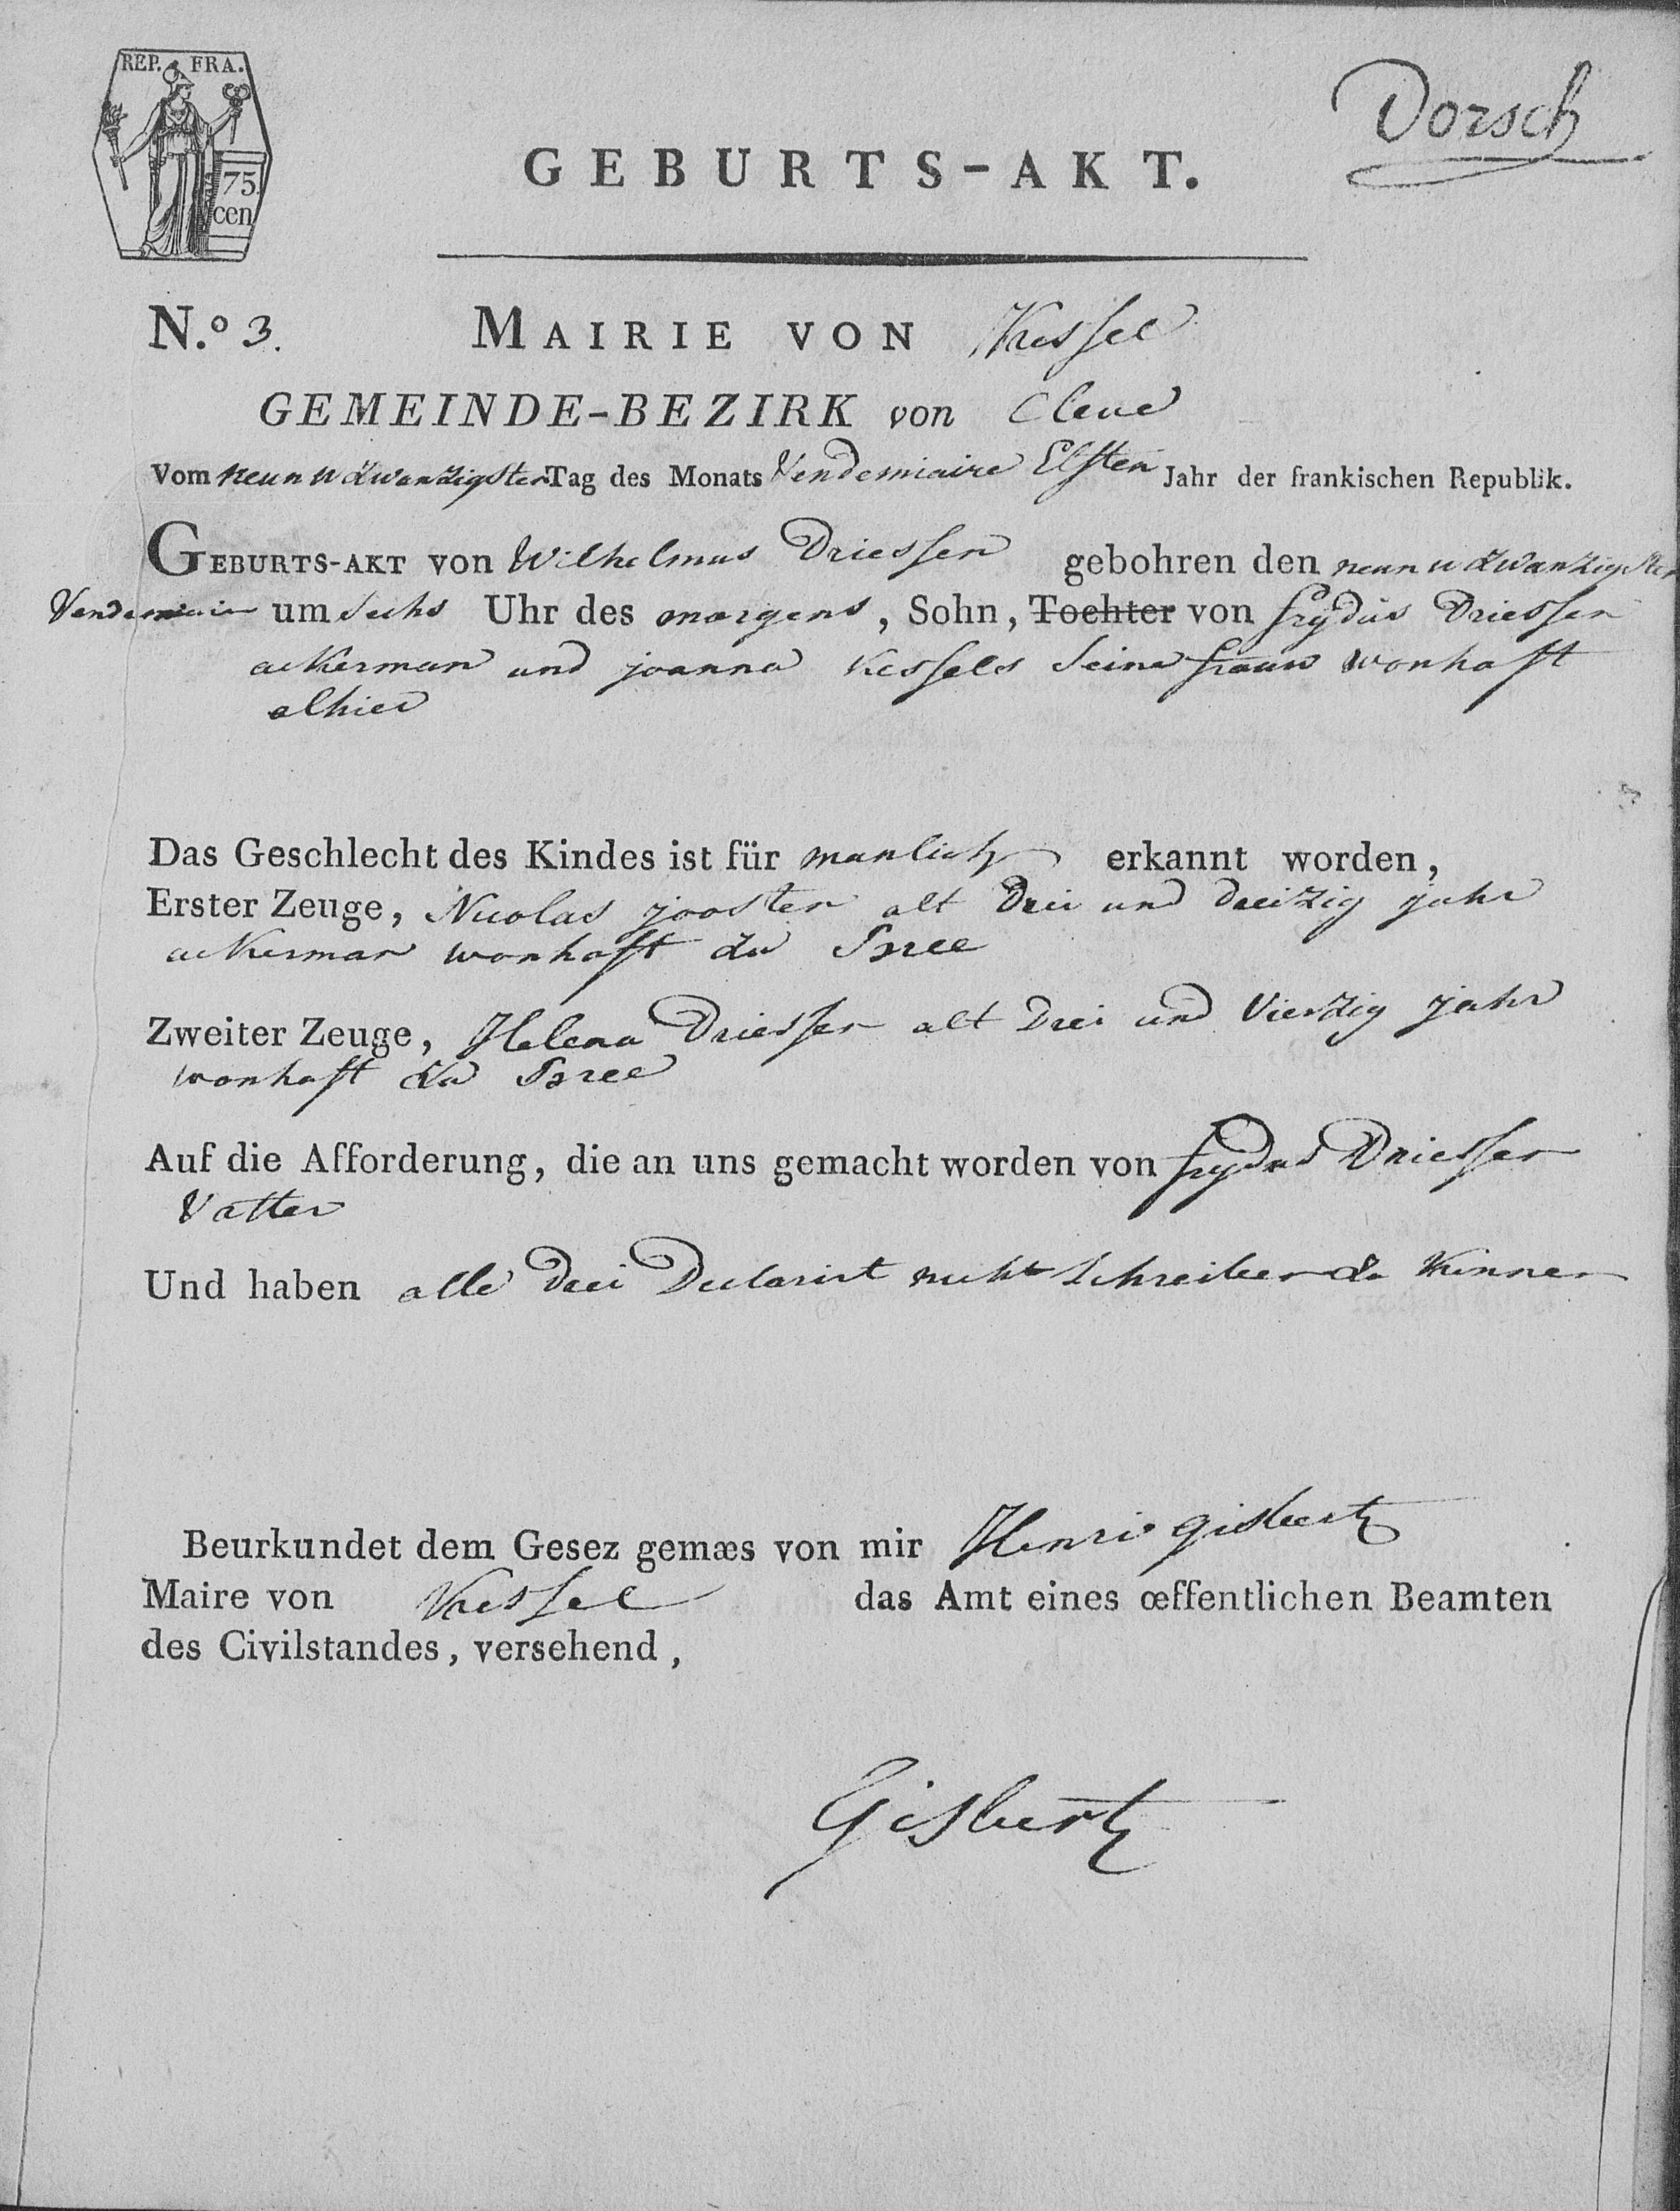 REP. FRA.
75
cen
Dorsch
GEBURTS-AKT.
N.o 3. MAIRIE VON Kessel
GEMEINDE-BEZIRK von Cleve
Vom neun u zwanzigsten Tag des Monats Vendemiaire Elften Jahr der frankischen Republik.
GEBURTS-AKT VON Wilhelmus Driessen gebohren den neun u zwanzigsten
Vendemiair um sechs Uhr des morgens, Sohn, Tochter von Driessen
ackerman und joanna Kessels seine frauw wonhaft
alhier
Das Geschlecht des Kindes ist für manlich erkannt worden,
Erster Zeuge, Nicolas joosten alt drei und dreizig jahr
ackerman wonhaft zu
Zweiter Zeuge, Helena Driessen alt drei und vierzig jahr
wonhaft zu
Auf die Afforderung, die an uns gemacht worden von Driessen
Vatter
Und haben alle drei Declarirt nicht schreiben zu kunnen
Beurkundet dem Gesez gemæs von mir Henri gisbertz
Maire von Kessel das Amt eines œffentlichen Beamten
des Civilstandes, versehend,
Gisbertz